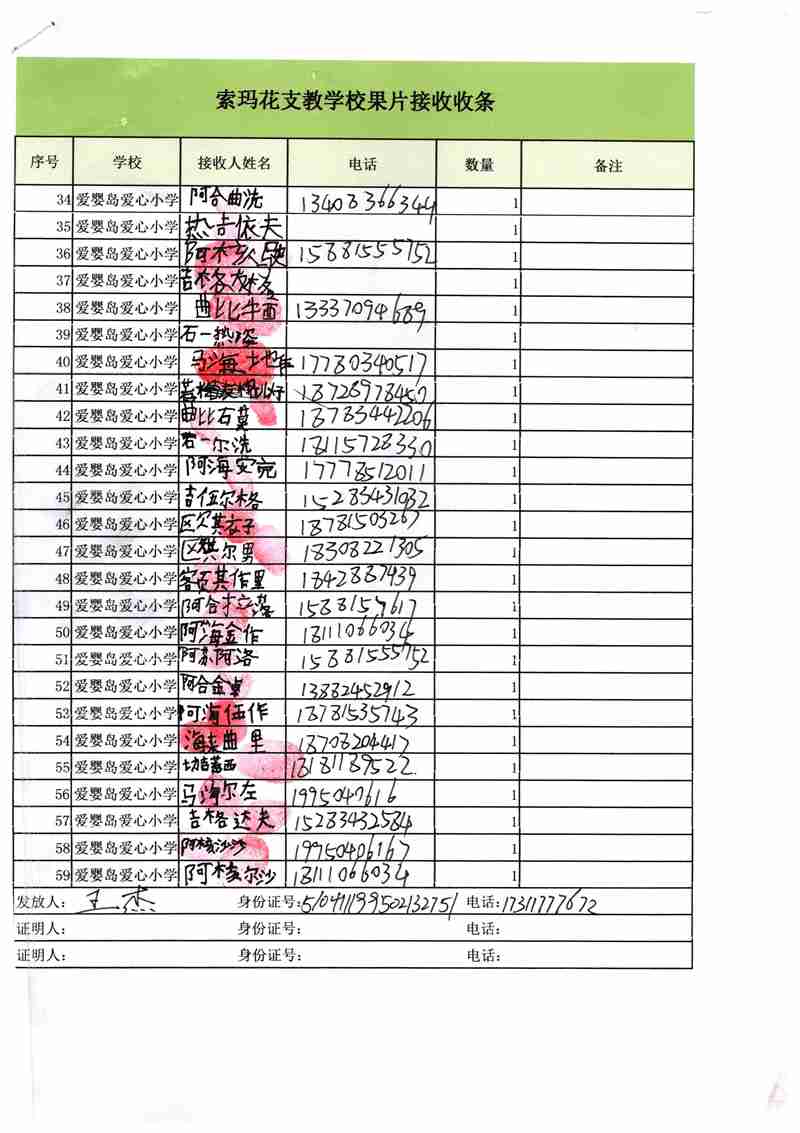 索玛花支教学校果片接收收条
序号 学校 接收人姓名 电话 数量 备注
34 爱婴岛爱心小学 阿合曲洗 13408366344 1
35 爱婴岛爱心小学 热吉依夫 1
36 爱婴岛爱心小学 15881555752 1
37 爱婴岛爱心小学 1
38 爱婴岛爱心小学 曲比牛面 13337094689 1
39 爱婴岛爱心小学 石一热 1
40 爱婴岛爱心小学 马海土地作 17780340517 1
41 爱婴岛爱心小学 18728978450 1
42 爱婴岛爱心小学 曲比石莫 18783442206 1
43 爱婴岛爱心小学 若一尔洗 18115728330 1
44 爱婴岛爱心小学 阿海安宛 17778512011 1
45 爱婴岛爱心小学 吉伍尔格 15283431032 1
46 爱婴岛爱心小学 区欠其衣子 18781503267 1
47 爱婴岛爱心小学 尔男 18308221305 1
48 爱婴岛爱心小学 其作里 1842887439 1
49 爱婴岛爱心小学 阿合 1588154617 1
50 爱婴岛爱心小学 阿海金作 18111066034 1
51 爱婴岛爱心小学 阿苏阿洛 15881555752 1
52 爱婴岛爱心小学 阿合金 13882452912 1
53 爱婴岛爱心小学 阿海伍作 18781535743 1
54 爱婴岛爱心小学 海来曲里 18708204417 1
55 爱婴岛爱心小学 18181189522 1
56 爱婴岛爱心小学 马海尔左 1995040616 1
57 爱婴岛爱心小学 吉格达夫 15283432584 1
58 爱婴岛爱心小学 阿核沙沙 19950406167 1
59 爱婴岛爱心小学 阿核尔沙 18111066034 1
发放人: 王杰 身份证号: 510411199502132751 电话: 17311777672
证明人: 身份证号: 电话:
证明人: 身份证号: 电话: